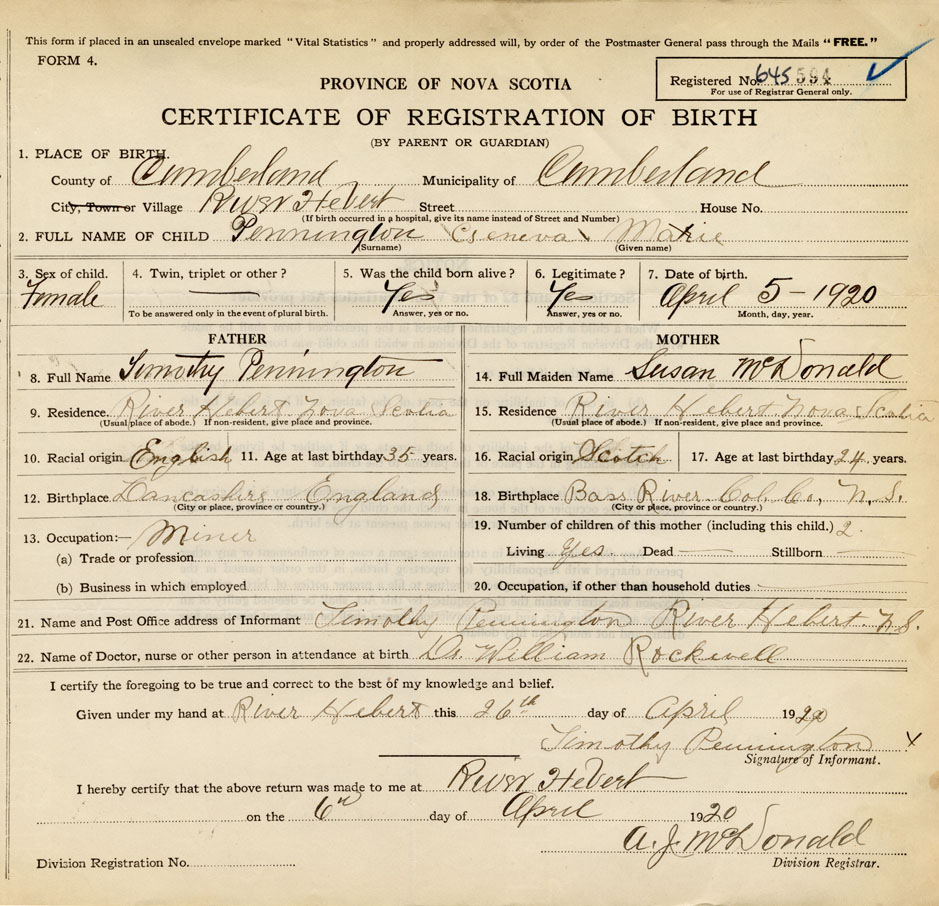 This form if placed in an unsealed envelope marked "Vital Statistics" and properly addressed will, by order of the Postmaster General pass through the Mails "FREE."
FORM 4.
Registered No. 645 594
For use of Registrar General only.
PROVINCE OF NOVA SCOTIA
CERTIFICATE OF REGISTRATION OF BIRTH
(BY PARENT OR GUARDIAN)
1. PLACE OF BIRTH.
County of Cumberland Municipality of Cumberland
City, Town or Village River Hebert Street House No.
(If birth occurred in a hospital, give its name instead of Street and Number)
2. FULL NAME OF CHILD Pennington Geneva Marie
(Surname) (Given name)
3. Sex of child. 4. Twin, triplet or other? 5. Was the child born alive? 6. Legitimate? 7. Date of birth.
Female — Yes Yes April 5 - 1920
To be answered only in the event of plural birth. Answer, yes or no. Answer, yes or no. Month, day, year.
FATHER
8. Full Name Timothy Pennington
9. Residence. River Hebert Nova Scotia
(Usual place of abode.) If non-resident, give place and province.
10. Racial origin English 11. Age at last birthday 35 years.
12. Birthplace Lancashire England
(City or place, province or country.)
13. Occupation:— Miner
(a) Trade or profession
(b) Business in which employed
MOTHER
14. Full Maiden Name Susan McDonald
15. Residence River Hebert Nova Scotia
(Usual place of abode.) If non-resident, give place and province.
16. Racial origin Scotch 17. Age at last birthday 24 years.
18. Birthplace Bass River Col. Co., N.S.
(City or place, province or country.)
19. Number of children of this mother (including this child.) 2
Living Yes. Dead — Stillborn —
20. Occupation, if other than household duties
21. Name and Post Office address of Informant Timothy Pennington River Hebert N.S.
22. Name of Doctor, nurse or other person in attendance at birth Dr. William Rockwell
I certify the foregoing to be true and correct to the best of my knowledge and belief.
Given under my hand at River Hebert this 26th day of April 1920
Timothy Pennington X
Signature of Informant.
I hereby certify that the above return was made to me at River Hebert
on the day of April 1920
A. J. McDonald
Division Registration No. Division Registrar.